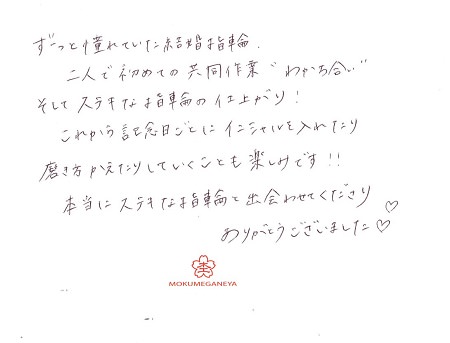 ずーっと憧れていた結婚指輪.
二人で初めての共同作業 "わかち合い"
そしてステキな指輪の仕上がり!
これから記念日ごとにイニシャルを入れたり
磨き方かえたりしていくことも楽しみです!!
本当にステキな指輪と出会わせてくださり
ありがとうございました♡♡
MOKUMEGANEYA